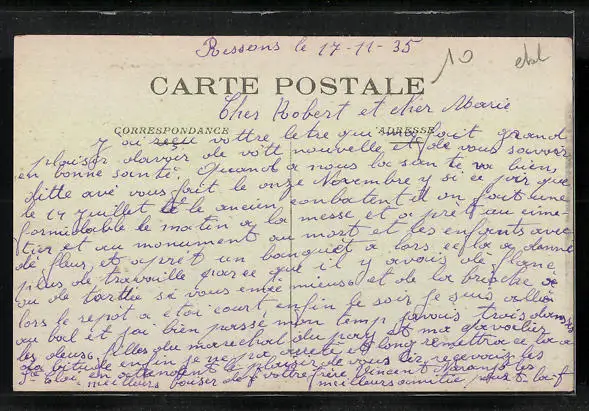 Ressons le 17-11-35
10
CARTE POSTALE
Cher Robert et cher Marie
CORRESPONDANCE ADRESSE
y ai reçu vottre letre qui ma fait grand
plaisir davoir de vott nouvelle et de vous savoir
en bonne santé. Quand a nous la santé va bien,
ditte avé vous fait le onze Novembre y si ce jour que
le 14 juillet le ancien combatent il on fait une
formidable le matin a la messe et a pret au cime
tier et au monument au mort et les enfants avec
dé fleur et apret un banquet a lors cela a donné
plus de travaille parce que il y avais dé flanc
ou de tartte si vous enmé mieuse et de la brioche
lors le repot a etoi court enfin le soir je suis allée
au bal et jai bien passé mon temp javais trois danses
les deuse filles du marechal du pay et ma cavalier
da bitude enfin je ne pa arreté et long remettra ce la a
St Eloi, en attendent le plaisir de vous lir recevoiz les
meilleurs bouser de votre frère Vincent
meilleurs amitié